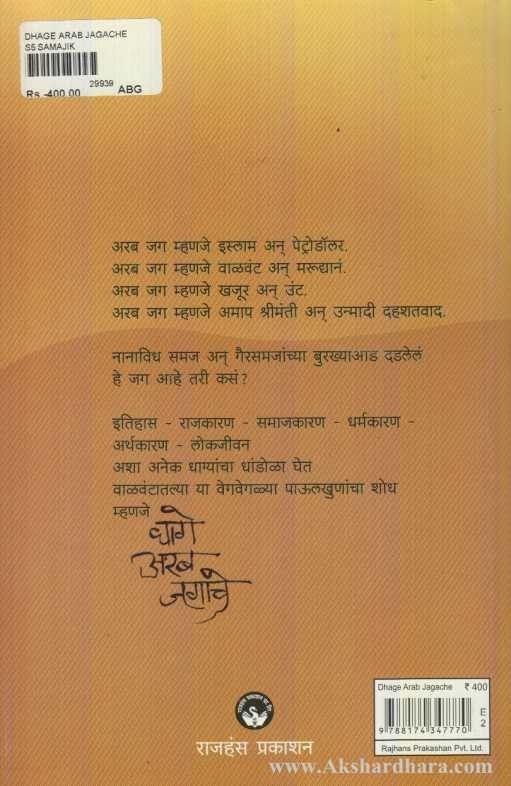 DHAGE ARAB JAGACHE
S5 SAMAJIK
29939
Rs -400.00 ABG
अरब जग म्हणजे इस्लाम अन् पेट्रोडॉलर.
अरब जग म्हणजे वाळवंट अन् मरूद्यानं.
अरब जग म्हणजे खजूर अन् उंट.
अरब जग म्हणजे अमाप श्रीमंती अन् उन्मादी दहशतवाद.
नानाविध समज अन् गैरसमजांच्या बुरख्याआड दडलेलं
हे जग आहे तरी कसं?
इतिहास - राजकारण - समाजकारण - धर्मकारण -
अर्थकारण - लोकजीवन
अशा अनेक धाग्यांचा धांडोळा घेत
वाळवंटातल्या या वेगवेगळ्या पाऊलखुणांचा शोध
म्हणजे
धागे
अरब
जगाचे
राजहंस प्रकाशन
Dhage Arab Jagache ₹ 400
E
2
9 788174 347770
Rajhans Prakashan Pvt. Ltd.
www.Akshardhara.com